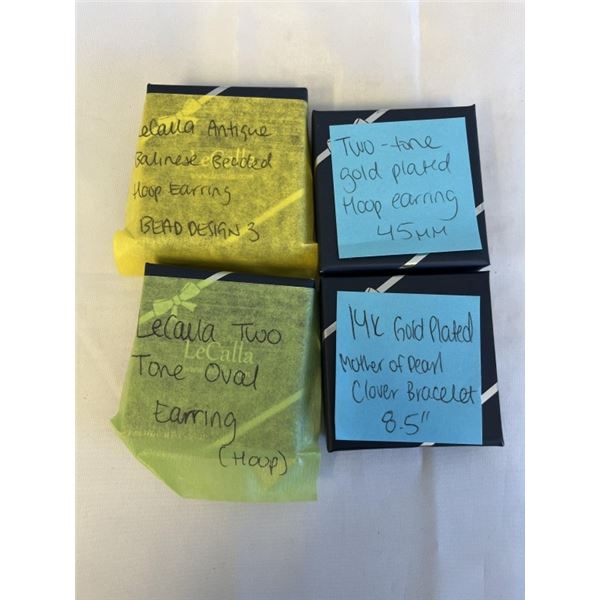 LeCalla Antique
Balinese Beaded
Hoop Earring
BEAD DESIGN 3
LeCalla
Two-tone
gold plated
Hoop earring
45MM
LeCalla Two
Tone Oval
Earring
(Hoop)
LeCalla
14K Gold Plated
Mother of Pearl
Clover Bracelet
8.5"